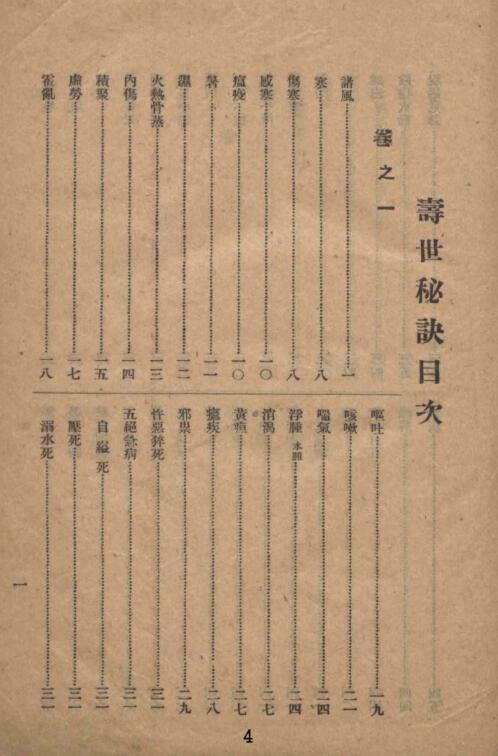 壽世秘訣目次
卷之一
諸風 一
寒 八
傷寒 八
感寒 一〇
瘟疫 一〇
暑 一一
濕 一二
火熱骨蒸 一三
內傷 一四
積聚 一五
虛勞 一七
霍亂 一八
嘔吐 一九
咳嗽 二一
喘氣 二四
浮腫 水腫 二四
消渴 二七
黃疸 二七
瘧疾 二八
邪祟 二九
忤惡猝死 三一
五絕急病 三一
自縊死 三一
壓死 三一
溺水死 三一
一
4